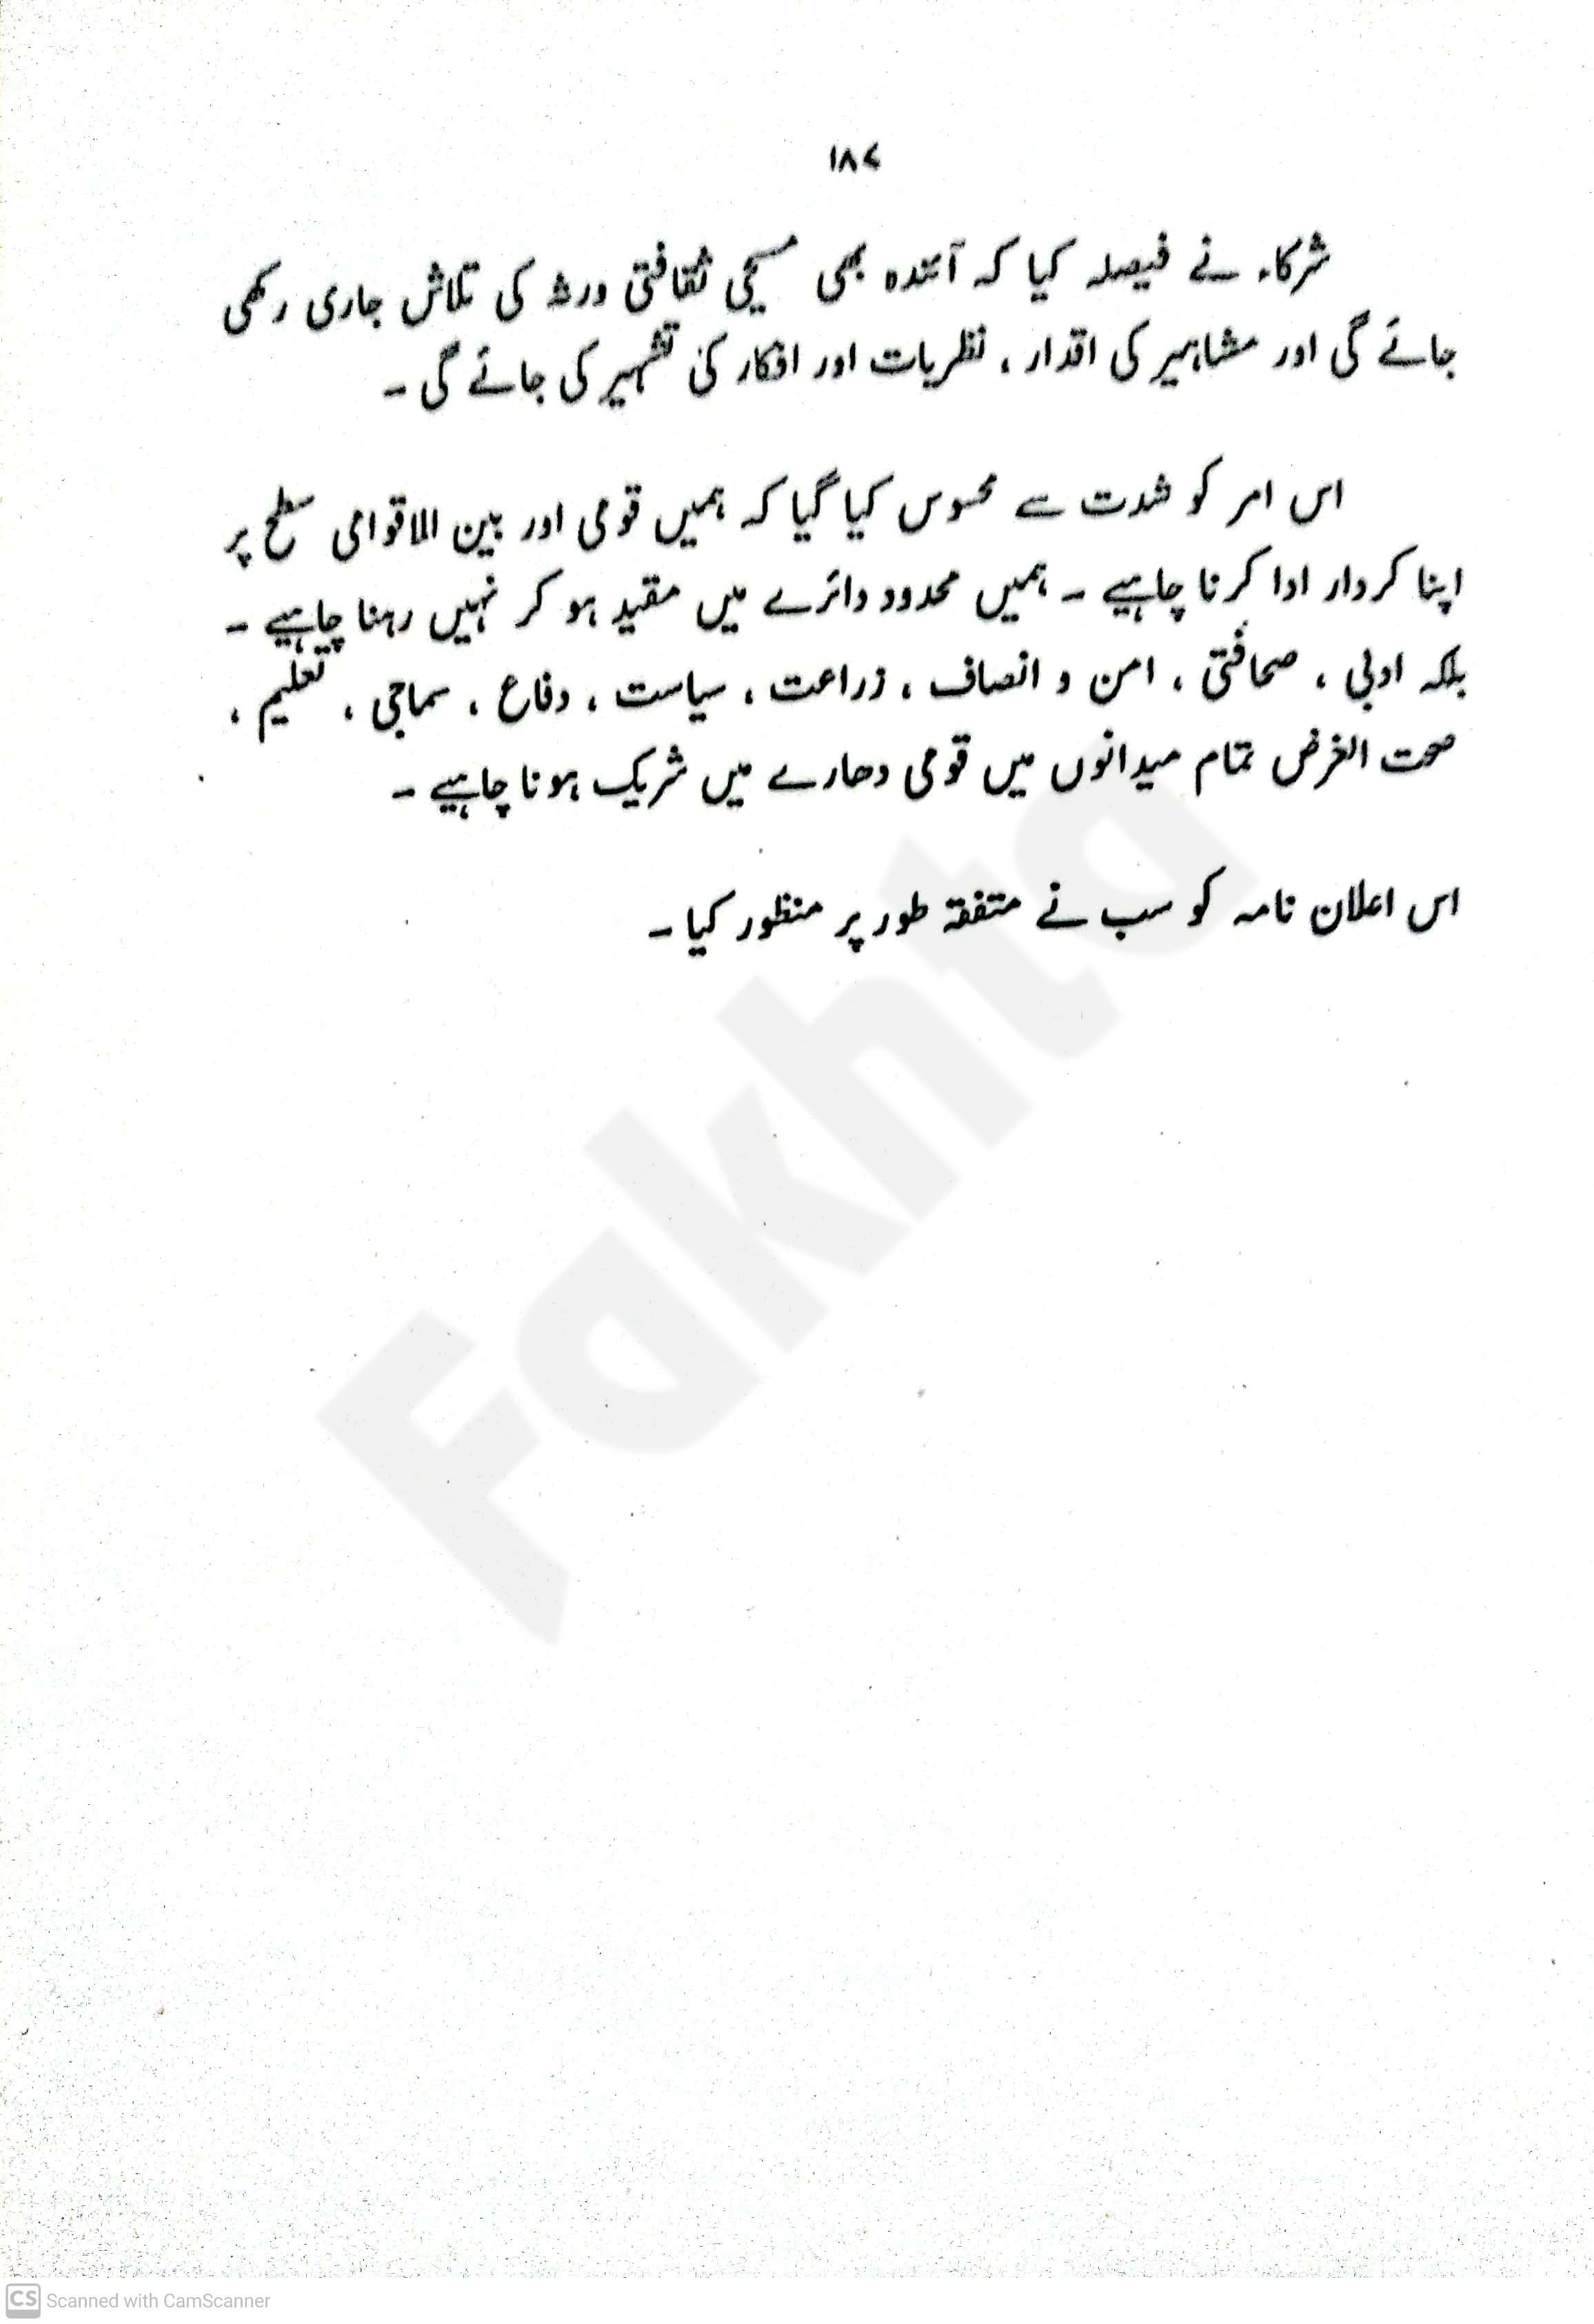 ۱۸۷
شرکاء نے فیصلہ کیا کہ آئندہ بھی مسیحی ثقافتی ورثہ کی تلاش جاری رکھی
جائے گی اور مشاہیر کی اقدار ، نظریات اور افکار کی تشہیر کی جائے گی ۔
اس امر کو شدت سے محسوس کیا گیا کہ ہمیں قومی اور بین الاقوامی سطح پر
اپنا کردار ادا کرنا چاہیے ۔ ہمیں محدود دائرے میں مقید ہو کر نہیں رہنا چاہیے ۔
بلکہ ادبی ، صحافتی ، امن و انصاف ، زراعت ، سیاست ، دفاع ، سماجی ، تعلیم ،
صحت الغرض تمام میدانوں میں قومی دھارے میں شریک ہونا چاہیے ۔
اس اعلان نامہ کو سب نے متفقہ طور پر منظور کیا ۔
Fakhta
CS Scanned with CamScanner